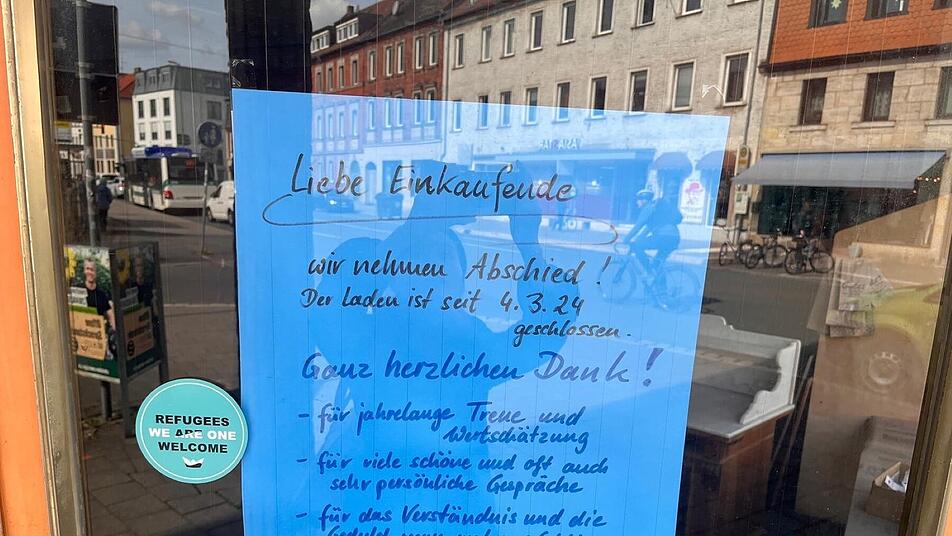 Liebe Einkaufende
wir nehmen Abschied!
Der Laden ist seit 4.3.24
geschlossen.
Ganz herzlichen Dank!
- für jahrelange Treue und
Wertschätzung
- für viele schöne und oft auch
sehr persönliche Gespräche
- für das Verständnis und die
Geduld, wenn
REFUGEES
WE ARE ONE
WELCOME